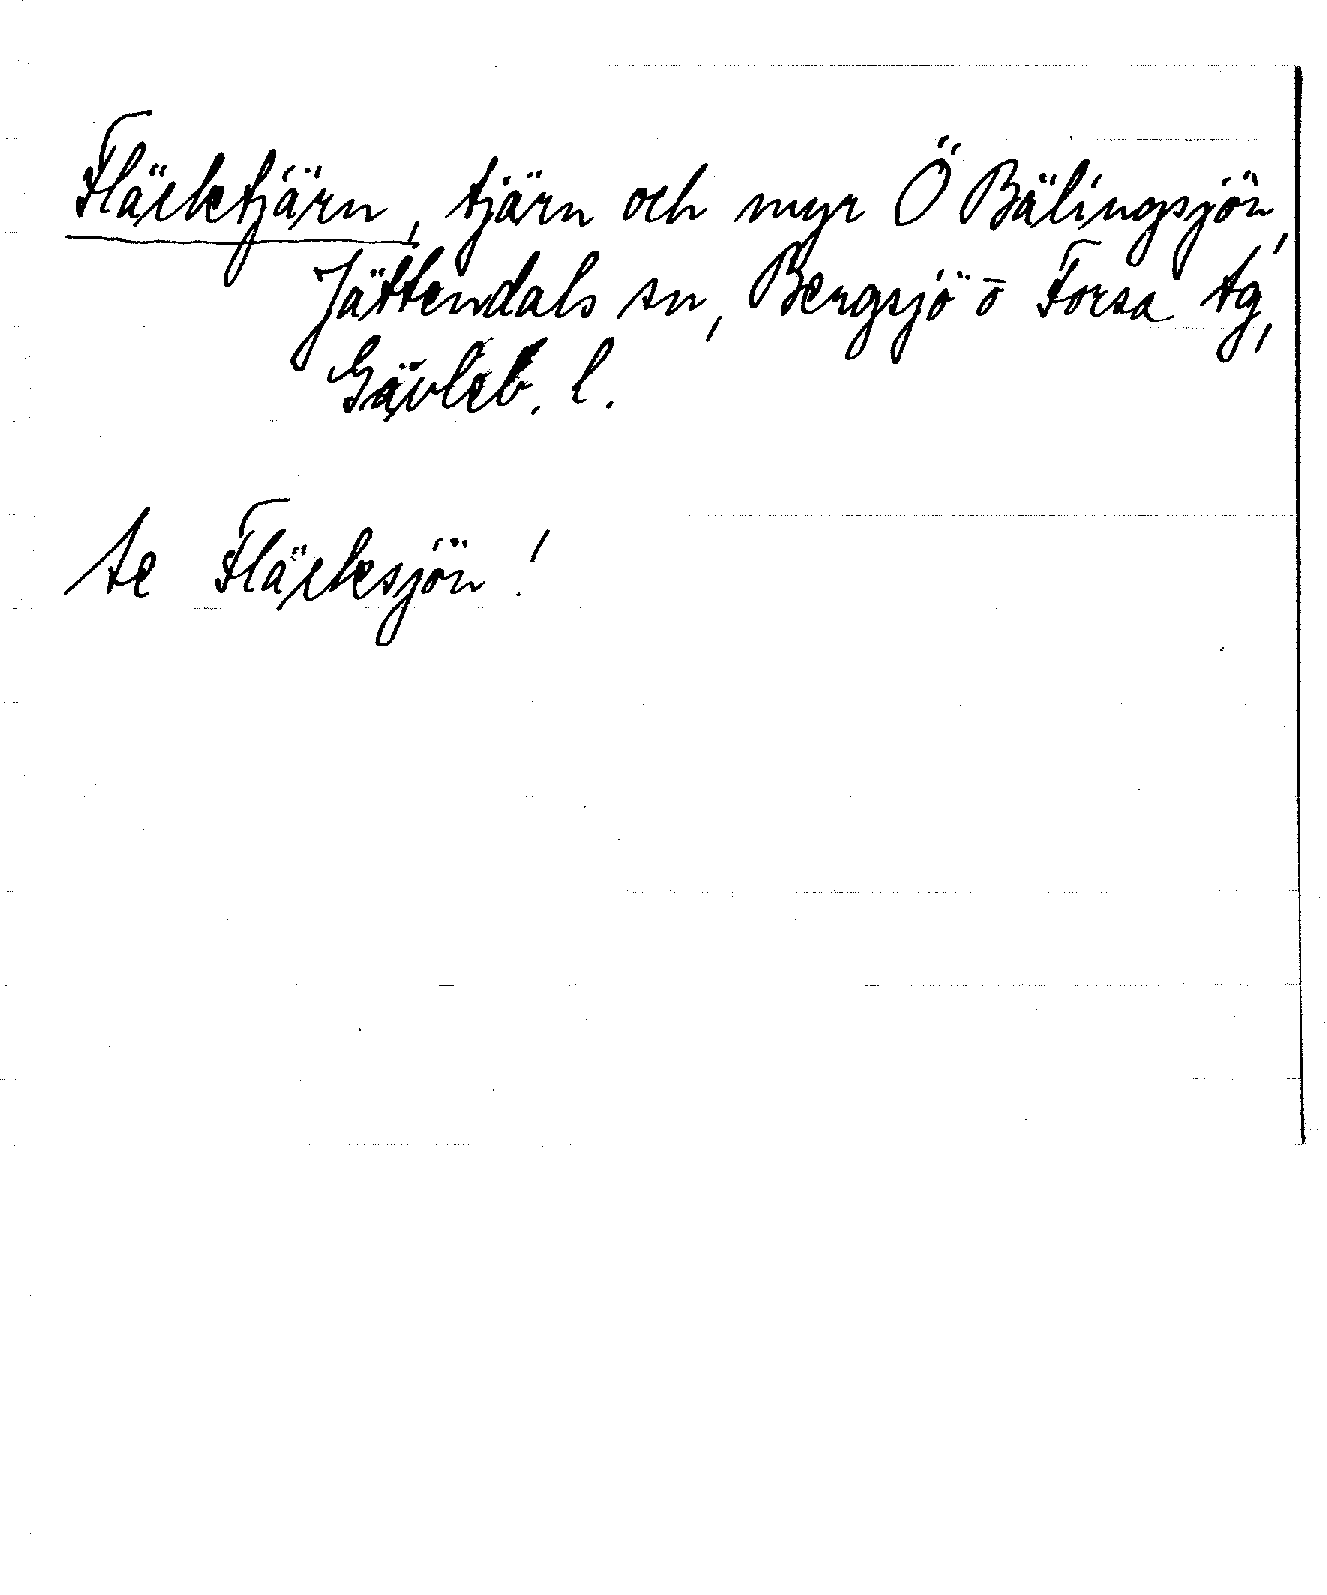 Fläcktjärn, tjärn och myr Ö Bälingsjön,
Jättendals sn, Bergsjö o Forsa tg,
Gävleb. l.
se Fläcksjön!